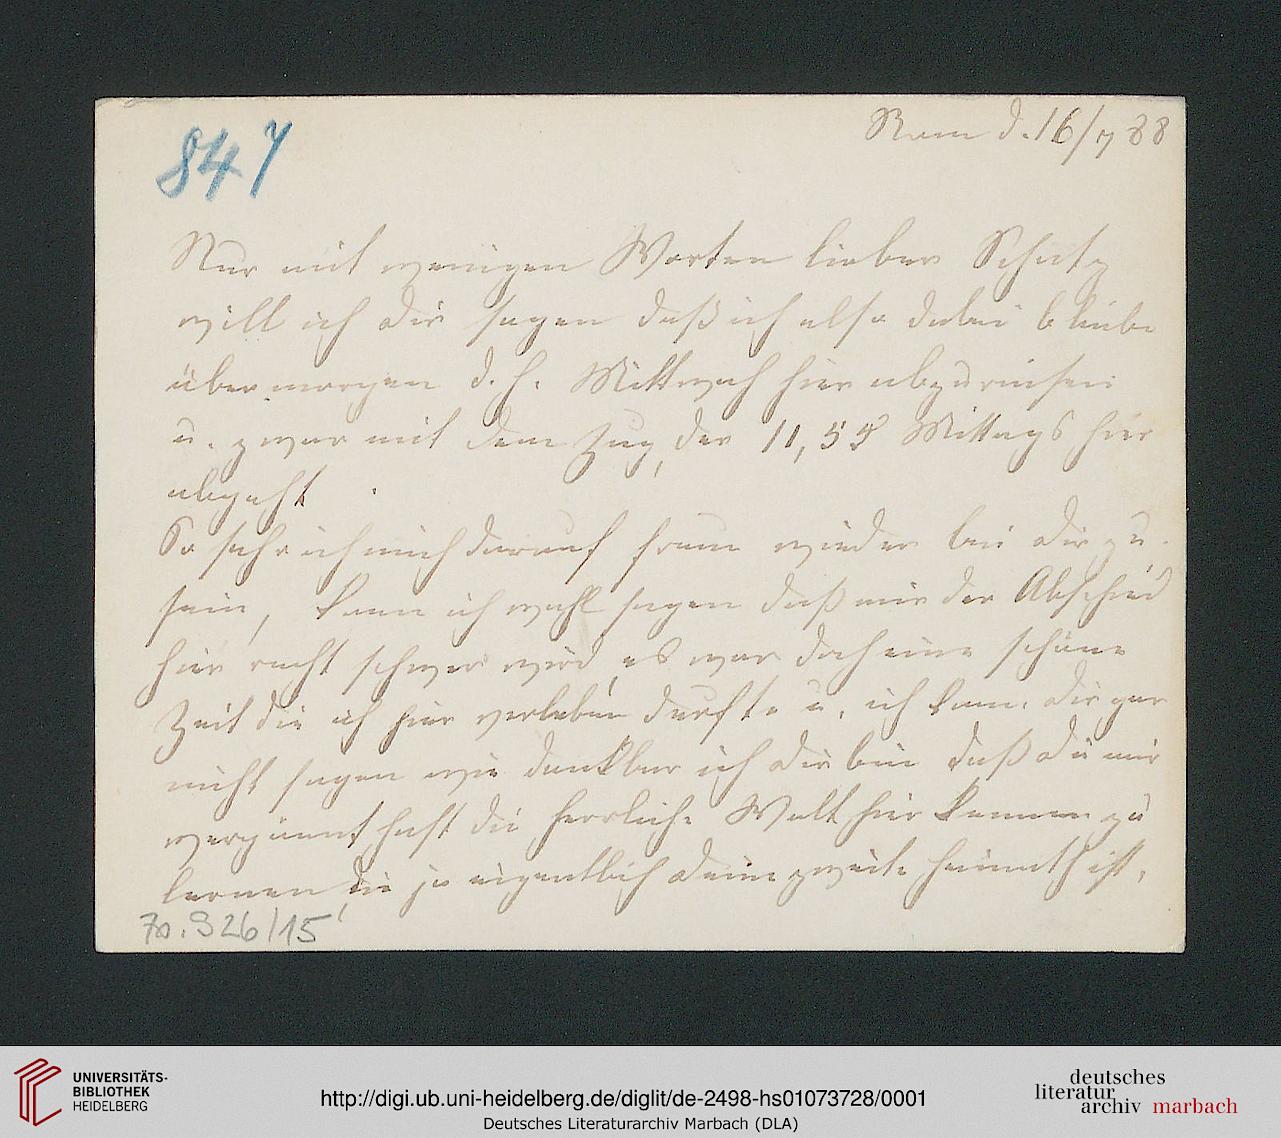 847
Rom d. 16/7 88
Nur mit wenigen Worten lieber Schatz
will ich dir sagen daß ich also dabei bleibe
übermorgen d. h. Mittwoch hier abzureisen
u. zwar mit dem Zug, der 11,55 Mittags hier
abgeht.
So sehr ich mich darauf freue wieder bei dir zu
sein, kann ich wohl sagen daß mir der Abschied
hier recht schwer wird, es war doch eine schöne
Zeit die ich hier verleben durfte u. ich kann dir gar
nicht sagen wie dankbar ich dir bin daß du mir
vergönnt hast die herrliche Welt hier kennen zu
lernen, die ja eigentlich deine zweite Heimath ist,
70.926/15
UNIVERSITÄTS-
BIBLIOTHEK
HEIDELBERG
http://digi.ub.uni-heidelberg.de/diglit/de-2498-hs01073728/0001
Deutsches Literaturarchiv Marbach (DLA)
deutsches
literatur
archiv marbach